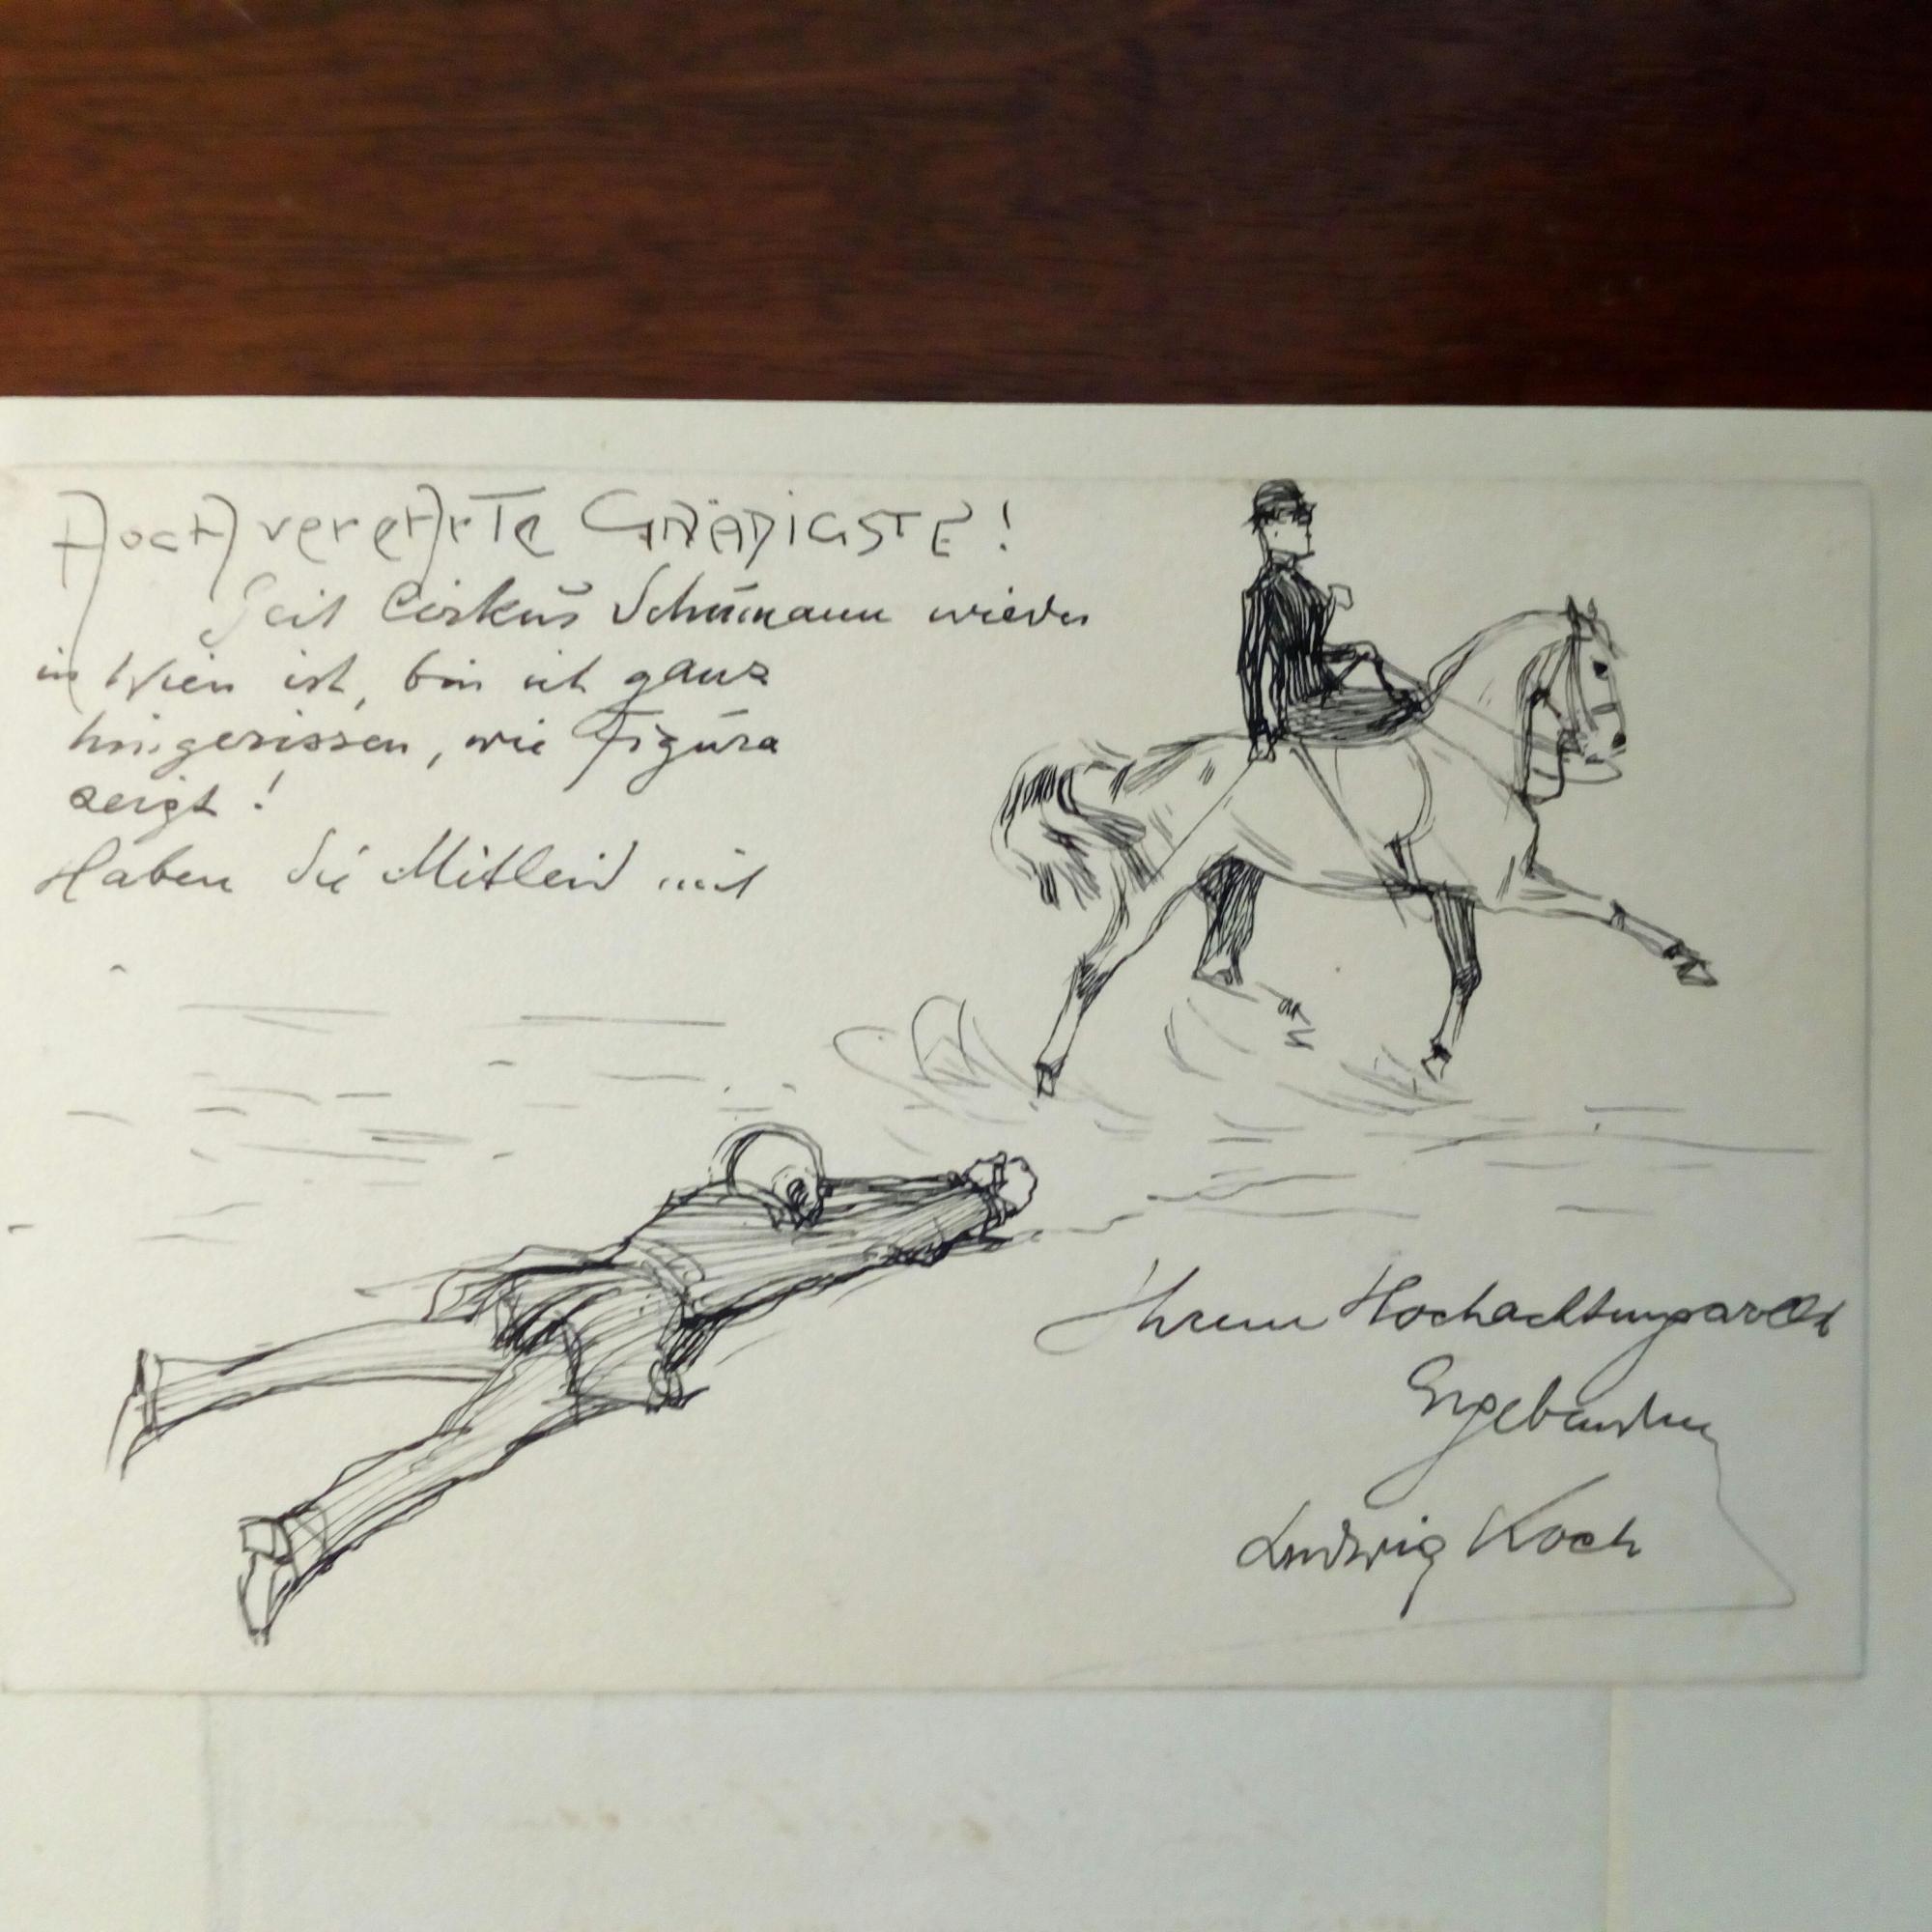 Hochverehrte GNÄDIGSTE!
Seit Cirkus Schumann wieder
in Wien ist, bin ich ganz
hingerissen, wie Figura
zeigt!
Haben Sie Mitleid mit
Ihrem Hochachtungsvollst
Ergebensten
Ludwig Koch